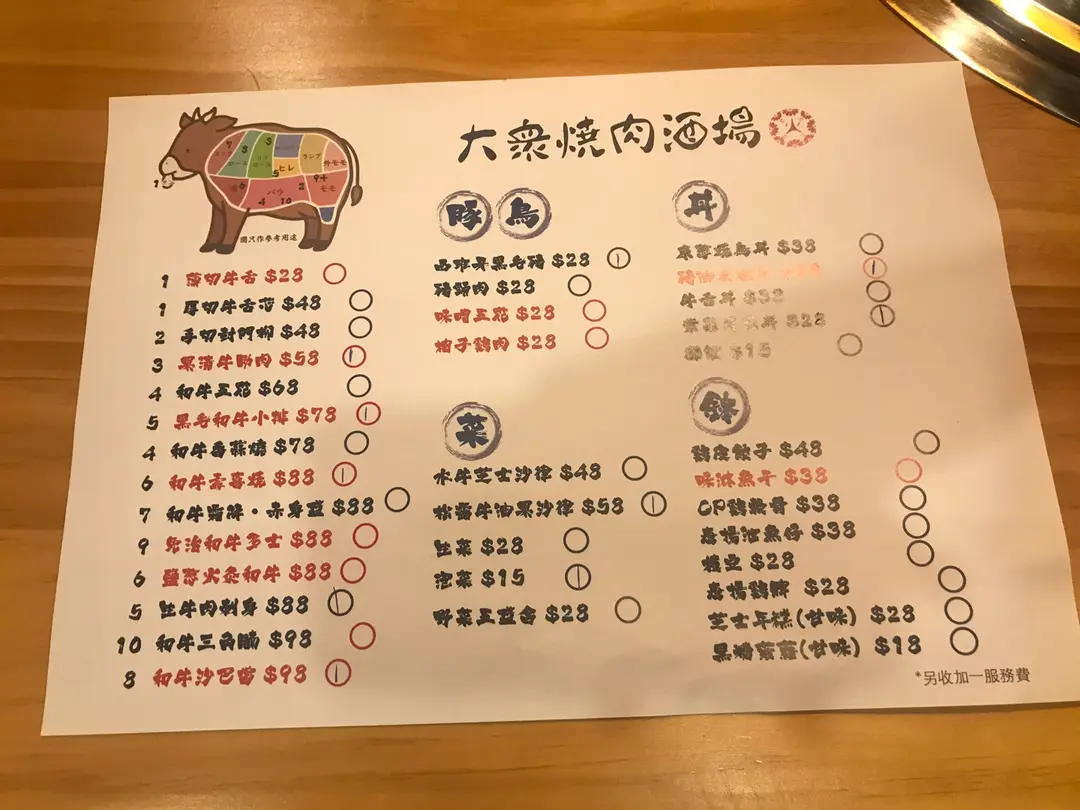 大衆燒肉酒場
圖只作參考用途
1 薄切牛舌 $28
1 厚切牛舌芯 $48
2 手切對門柳 $48
3 黑清牛助肉 $58
4 和牛五花 $68
5 黑毛和牛小排 $78
4 和牛香蒜燒 $78
6 和牛壽喜燒 $88
7 和牛霜降・赤身盛 $88
9 和牛多士 $88
6 鹽蔥火灸和牛 $88
5 生牛肉刺身 $88
10 和牛三角腩 $98
8 和牛沙巴醬 $98
豚 鳥
西班牙黑毛豬 $28
豬頸肉 $28
味噌五花 $28
柚子雞肉 $28
菜
水牛芝士沙律 $48
松露牛油果沙律 $58
生菜 $28
泡菜 $15
野菜五盛合 $28
丼
$38
牛舌丼 $38
$28
$15
雞皮餃子 $48
味淋魚干 $38
CP雞軟骨 $38
$38
枝豆 $28
$28
芝士年糕(甘味) $28
黑糖蕨藶(甘味) $18
*另收加一服務費